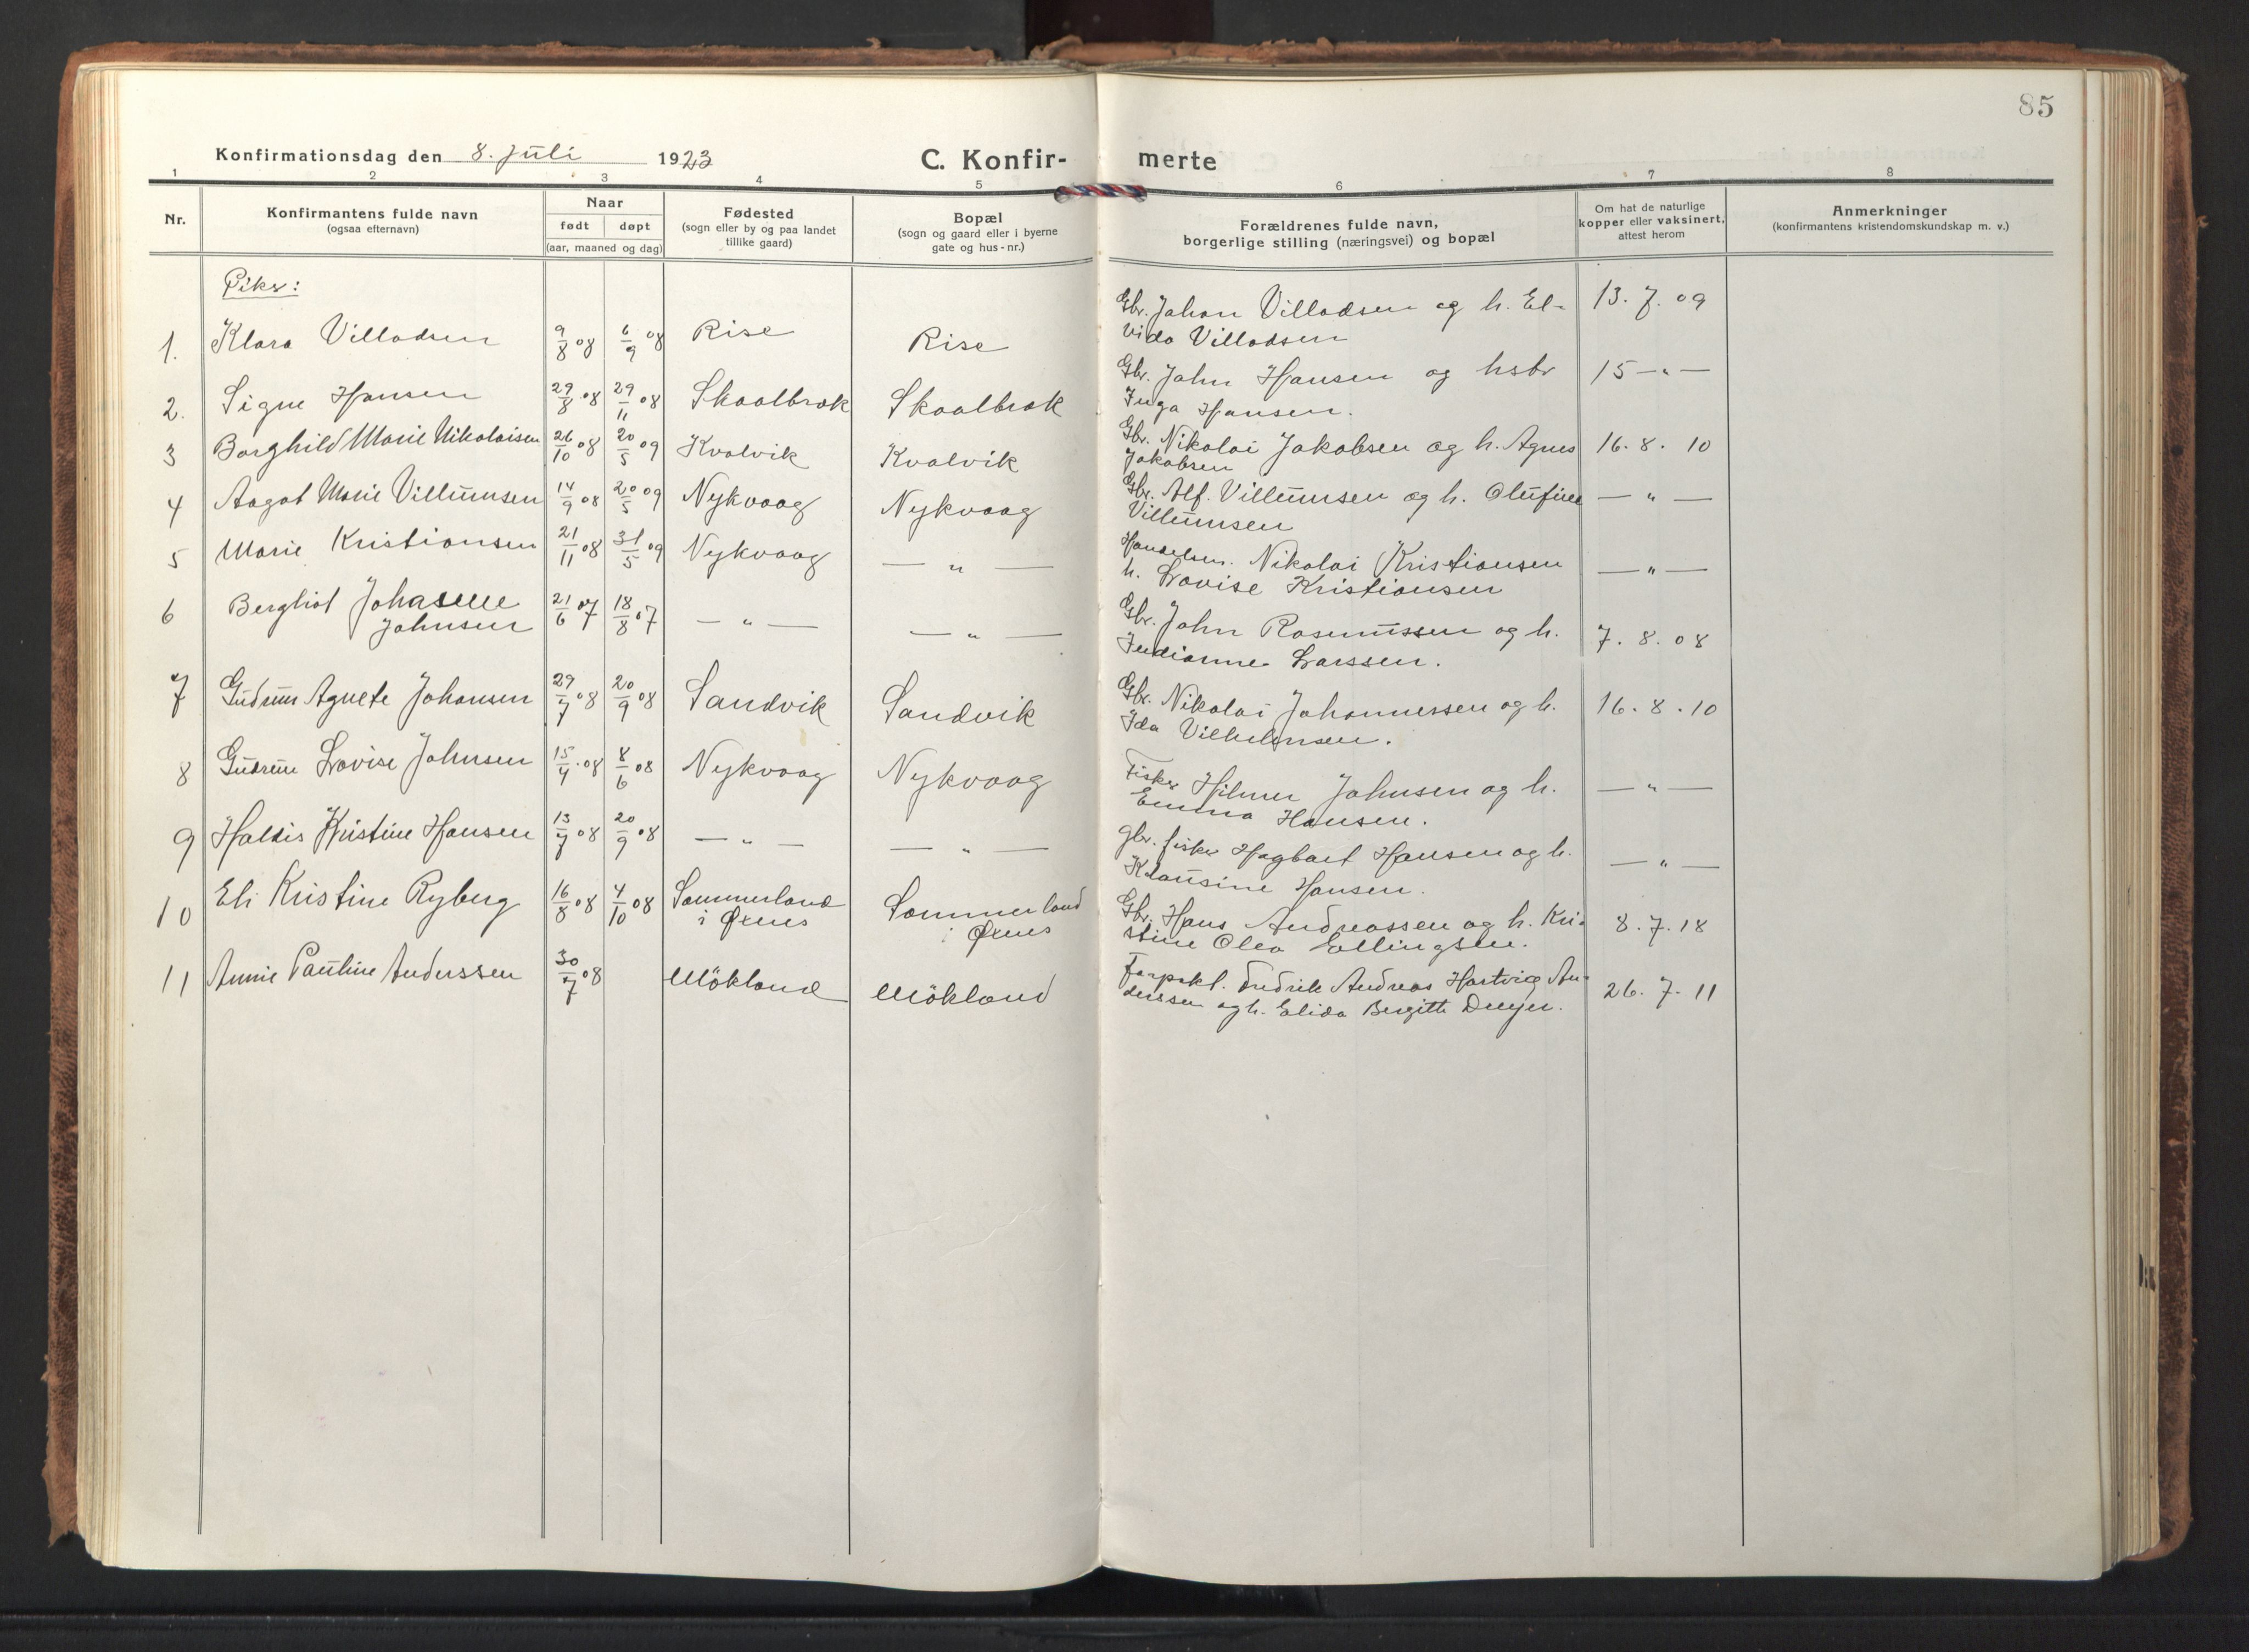 85
Konfirmationsdag den 8. Juli 1923
C. Konfirmerte
1 2 3 4 5 6 7 8
Nr.
Konfirmantens fulde navn
(ogsaa efternavn)
Naar
født døpt
(aar, maaned og dag)
Fødested
(sogn eller by og paa landet
tillike gaard)
Bopæl
(sogn og gaard eller i byerne
gate og hus-nr.)
Forældrenes fulde navn,
borgerlige stilling (næringsvei) og bopæl
Om hat de naturlige
kopper eller vaksinert,
attest herom
Anmerkninger
(konfirmantens kristendomskundskap m. v.)
Piker:
1. Klara Villadsen 9/8 08 6/9 08 Rise Rise Gbr. Johan Villadsen og h. El- 13. 7. 09
vida Villadsen
2. Signe Hansen 29/8 08 29/11 08 Skaalbrek Skaalbrek Gbr. John Hansen og hstr 15 — " —
Inga Hansen.
3 Borghild Marie Nikolaisen 26/10 08 20/5 09 Kvalvik Kvalvik Gbr. Nikolai Jakobsen og h. Agnes 16. 8. 10
Jakobsen
4 Aagot Marie Villumsen 14/9 08 20/5 09 Nykvaag Nykvaag Gbr. Alf. Villumsen og h. Olufine — " —
Villumsen
5 Marie Kristiansen 21/11 08 31/5 09 Nykvaag — " — Handelsm. Nikolai Kristiansen — " —
h. Lovise Kristiansen
6 Bergliot Johanne 21/6 07 18/8 07 — " — — " — Gbr. John Rasmussen og h. 7. 8. 08
Johnsen Indianne Larssen.
7 Gudrun Agnete Johansen 29/7 08 20/9 08 Sandvik Sandvik Gbr. Nikolai Johannessen og h. 16. 8. 10
Ida Vilhelmsen.
8 Gudrun Lovise Johnsen 15/4 08 8/6 08 Nykvaag Nykvaag Fisker Hilmer Johnsen og h. — " —
Emma Hansen.
9 Haldis Kristine Hansen 13/7 08 20/9 08 — " — — " — gbr. fisker Hagbart Hansen og h. — " —
Klausine Hansen.
10 Eli Kristine Ryberg 16/8 08 4/10 08 Sommerland Sommerland Gbr. Hans Andreassen og h. Kri- 8. 7. 18
i Øxnes i Øxnes stine Olea Ellingsen.
11 Annie Pauline Anderssen 30/7 08 Mökland Mökland Fredrik Andreas Hartvig An- 26. 7. 11
derssen og h. Elida Bergitte Dreyer.